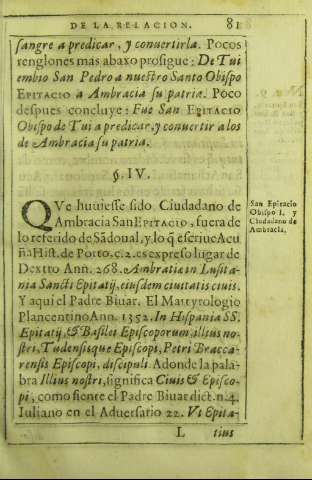 DE LA RELACION. 81
sangre a predicar, y conuertirla. Pocos
renglones mas abaxo prosigue: De Tui
embio San Pedro a nuestro Santo Obispo
EPITACIO a Ambracia su patria. Poco
despues concluye: Fue San EPITACIO
Obispo de Tui a predicar, y conuertir a los
de Ambracia su patria.
§. IV.
QVe huuiesse sido Ciudadano de
Ambracia San EPITACIO, fuera de
lo referido de Sãdoual, y lo q̃ escriue Acu
ña Hist. de Porto. c. 2. es expreso lugar de
Dextro Ann. 268. Ambratiæ in Lusita-
nia Sancti Epitatij, eiusdem ciuitatis ciuis.
Y aqui el Padre Biuar. El Martyrologio
Plancentino Ann. 1352. In Hispania SS.
Epitatij, & Basilei Episcoporum illius no-
stri, Tudensisque Episcopi, Petri Bracca-
rensis Episcopi, discipuli. Adonde la pala-
bra Illius nostri, significa Ciuis & Episco-
pi, como siente el Padre Biuar dict. n. 4.
Iuliano en el Aduersario 22. Vt Epita-
L tius
San Epitacio
Obispo I. y
Ciudadano de
Ambracia.